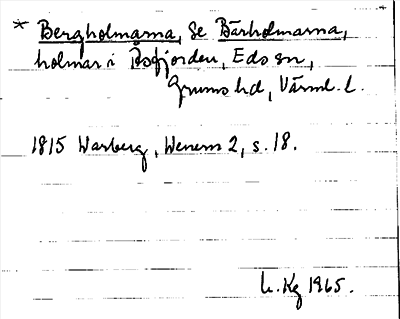 * Bergholmarna, se Bärholmarna,
holmar i Åsfjorden, Eds sn,
Grums hd, Värml. l.
1815 Warberg, Wenern 2, s. 18.
L. Kg 1965.